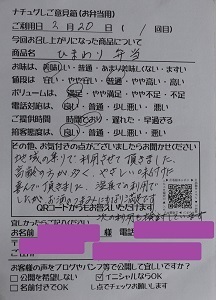 ナチュグしご意見箱(お弁当用)
ご利用日 2月20日( 1 回目)
今回お召し上がりになった商品について
商品名 ひまわり弁当
お味は、美味しい・普通・あまり美味しくない・まずい
値段は 安い・やや安い・普通・やや高い・高い
ボリュームは 満足・やや満足・普通・やや不満・不満
電話対応は 良い・普通・少し悪い・悪い
ご提供時間 時間どおり・遅れた・早過ぎる
接客態度は 良い・普通・少し悪い・悪い
その他、お気付きの点がございましたらお聞かせください
地域の集りで利用させて頂きました。
高齢の方が多く、やさしい味付けに
喜んで頂きました。
QRコードからもお答えいただけます
宜しかったらご記入ください
お名前 様 電話
〒
ご住所
お客様の声をブログやパンフ等で公開して宜しいですか?
公開を希望しない イニシャルならOK
名前付きでOK し点でチェックお願いします